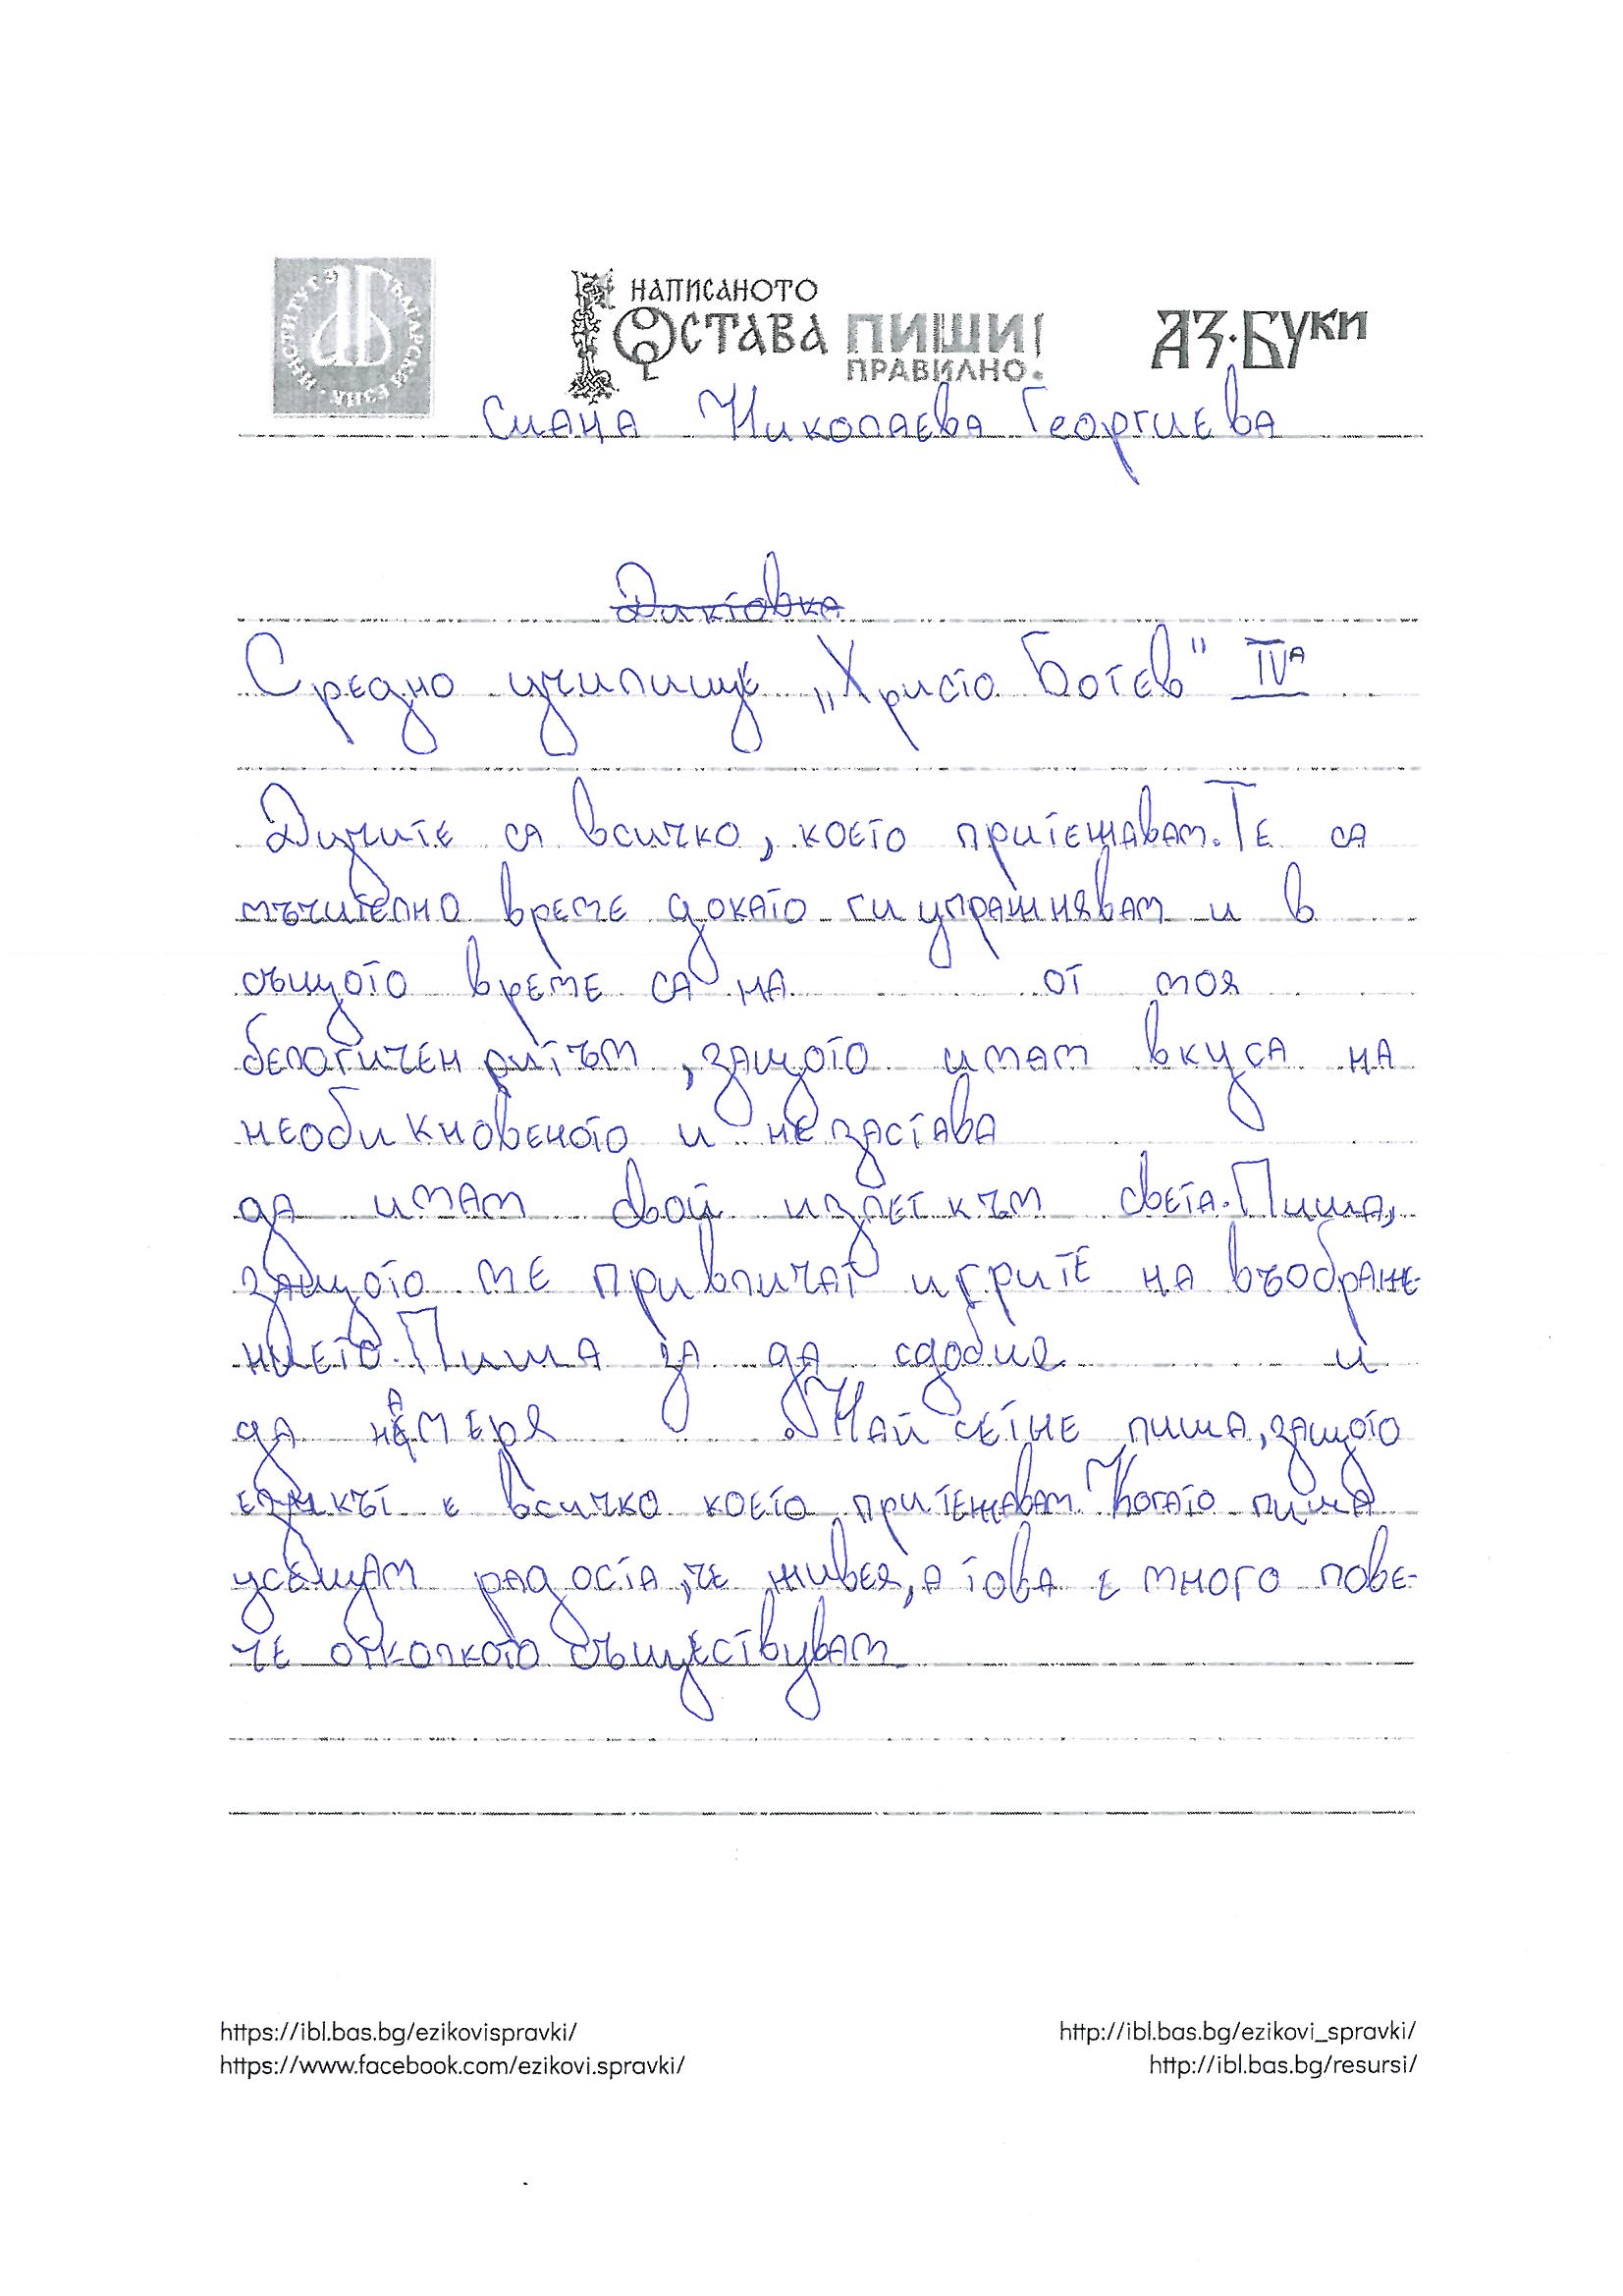 ИНСТИТУТ ЗА БЪЛГАРСКИ ЕЗИК
НАПИСАНОТО
ОСТАВА ПИШИ!
ПРАВИЛНО.
АЗ·БУКИ
Сиана Николаева Георгиева
Диктовка
Средно училище „Христо Ботев" IVA
Дизчите са всичко, което притежавам. Те са
мъчително време докато ги упражнявам и в
същото време са на от моя
белогичен ритъм, защото имам вкуса на
необикновеното и не застава
да имам свой излет към света. Пиша,
защото ме привличат игрите на въображе-
нието. Пиша за да сдобия и
да намеря . Най сетне пиша, защото
езикът е всичко което притежавам. Когато пиша
усещам радоста, че живея, а това е много пове-
че отколкото съществувам
https://ibl.bas.bg/ezikovispravki/
https://www.facebook.com/ezikovi.spravki/
http://ibl.bas.bg/ezikovi_spravki/
http://ibl.bas.bg/resursi/